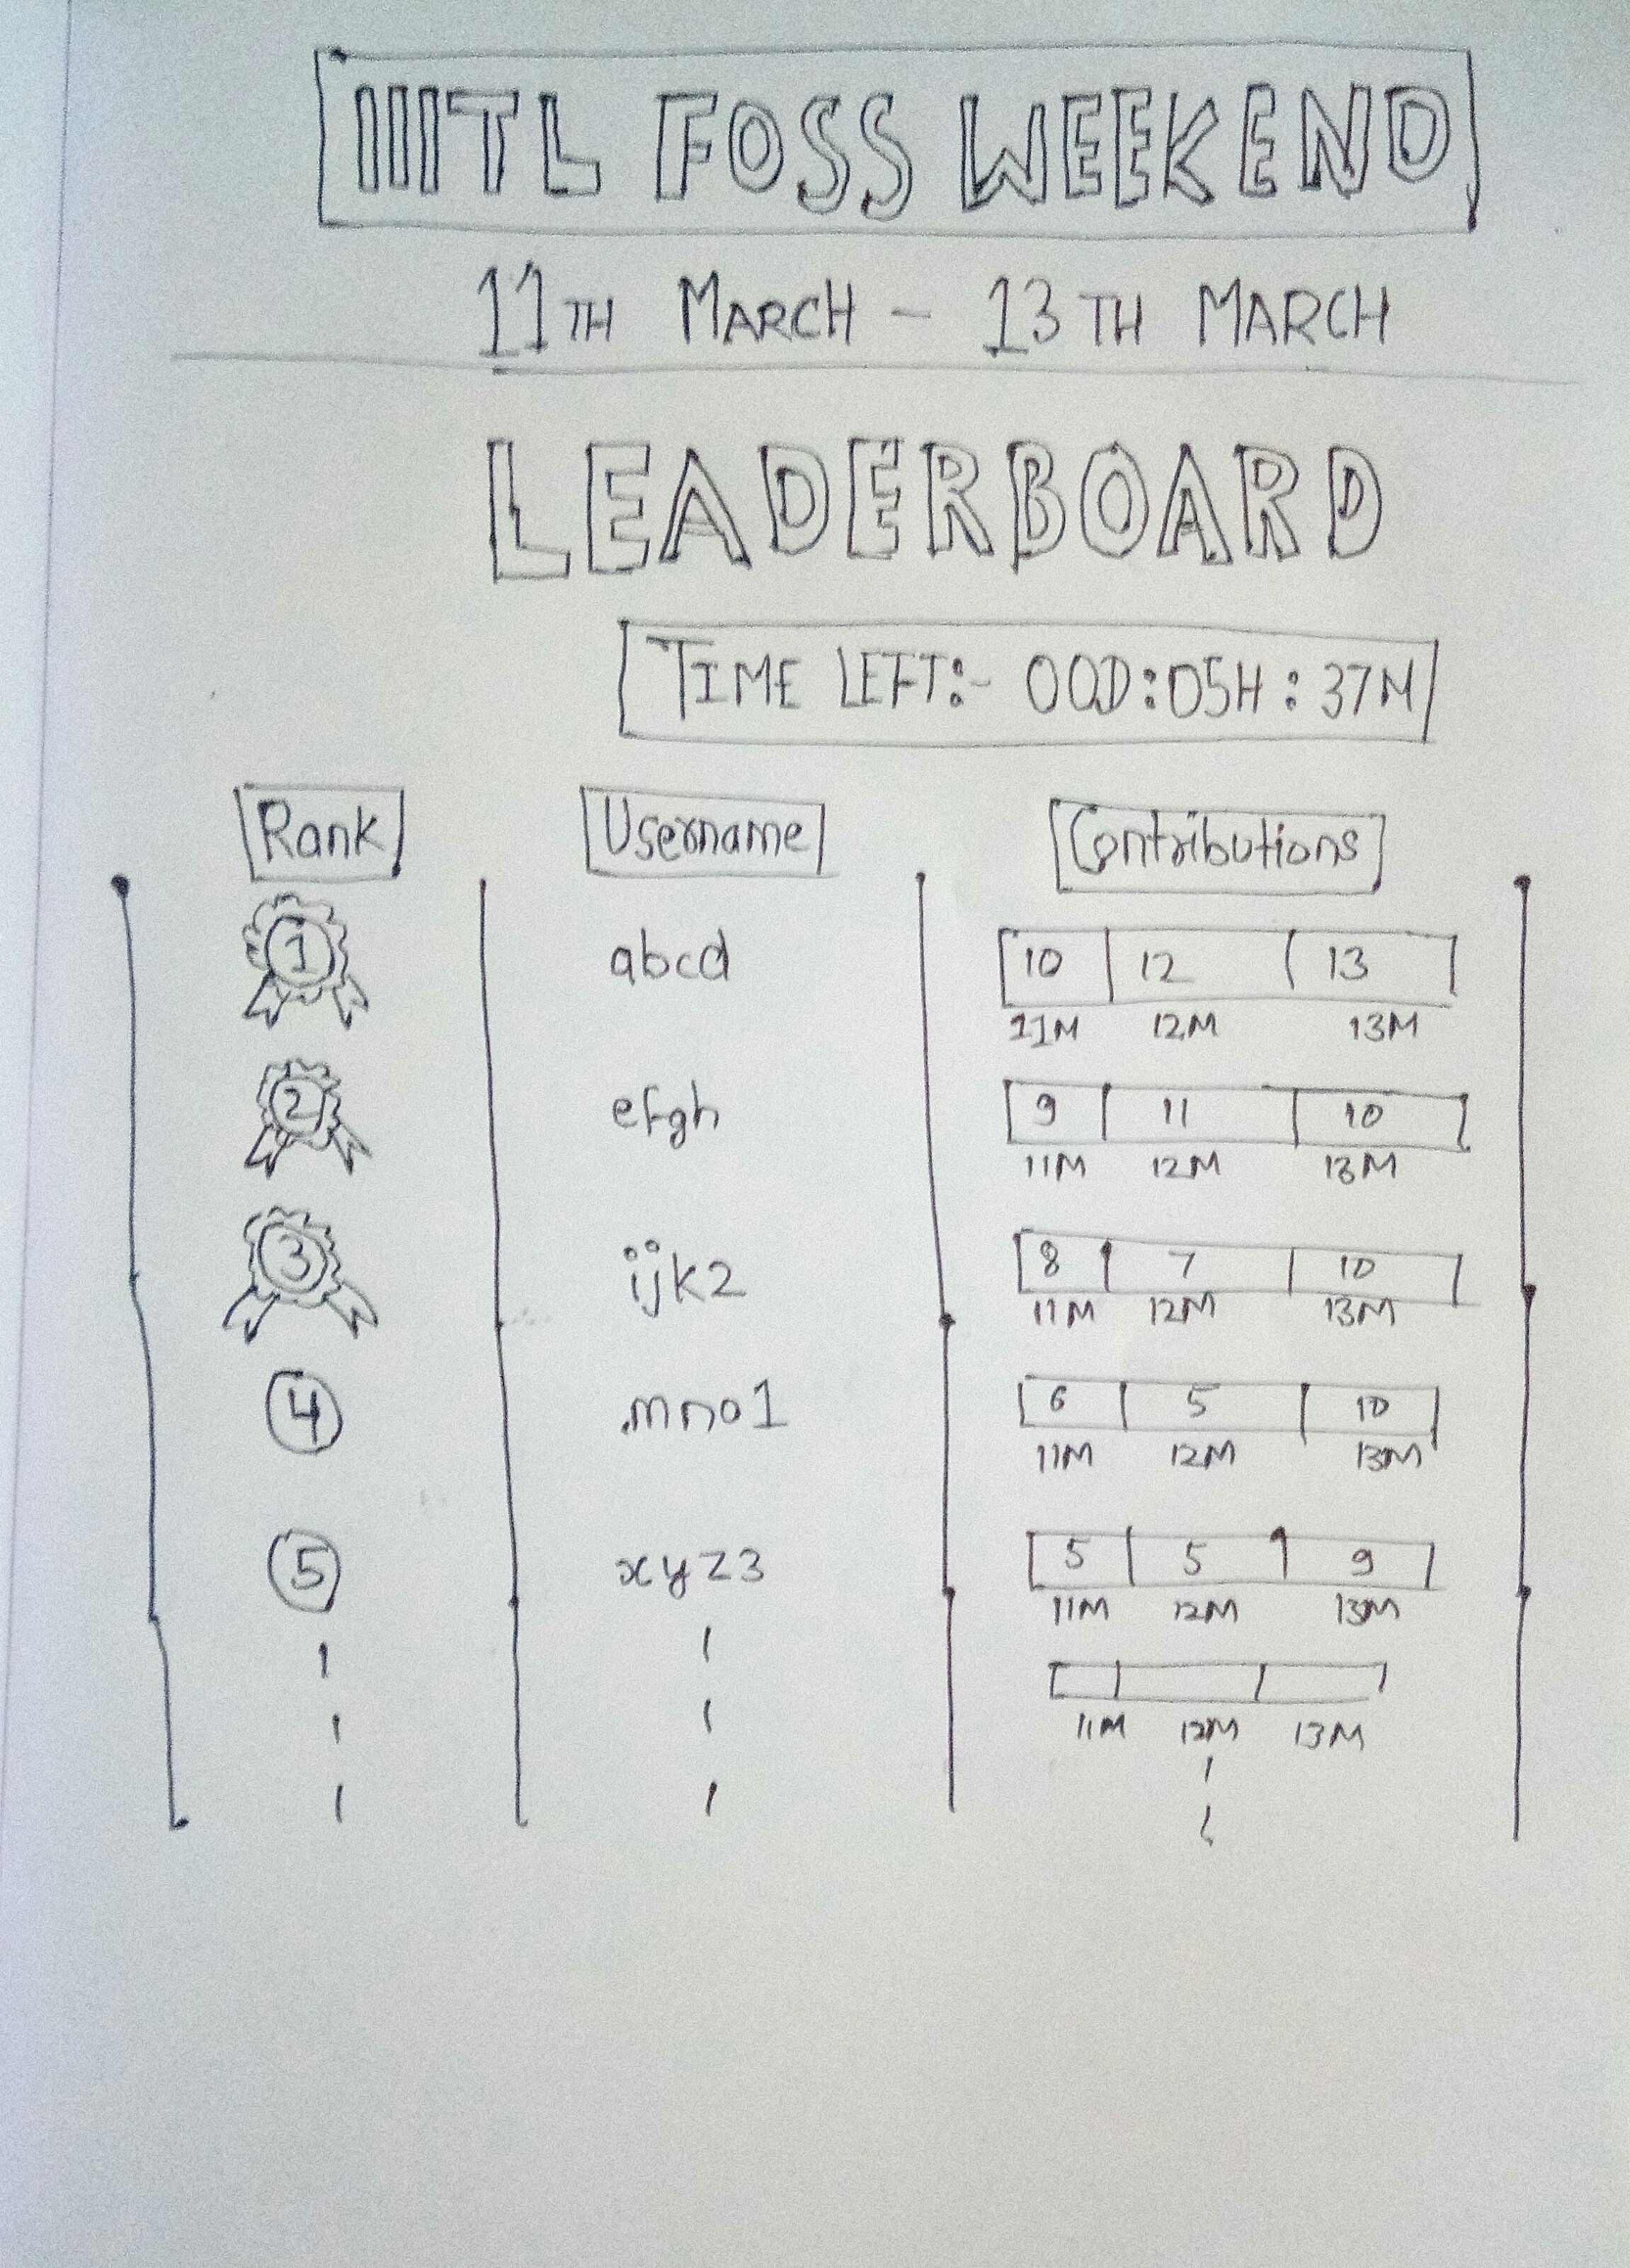 IIITL FOSS WEEKEND
11TH MARCH - 13TH MARCH
LEADERBOARD
TIME LEFT:- 00D:05H:37M
Rank Username Contributions
1 abcd 10 12 13
11M 12M 13M
2 efgh 9 11 10
11M 12M 13M
3 ijk2 8 7 10
11M 12M 13M
4 mno1 6 5 10
11M 12M 13M
5 xyz3 5 5 9
11M 12M 13M
11M 12M 13M